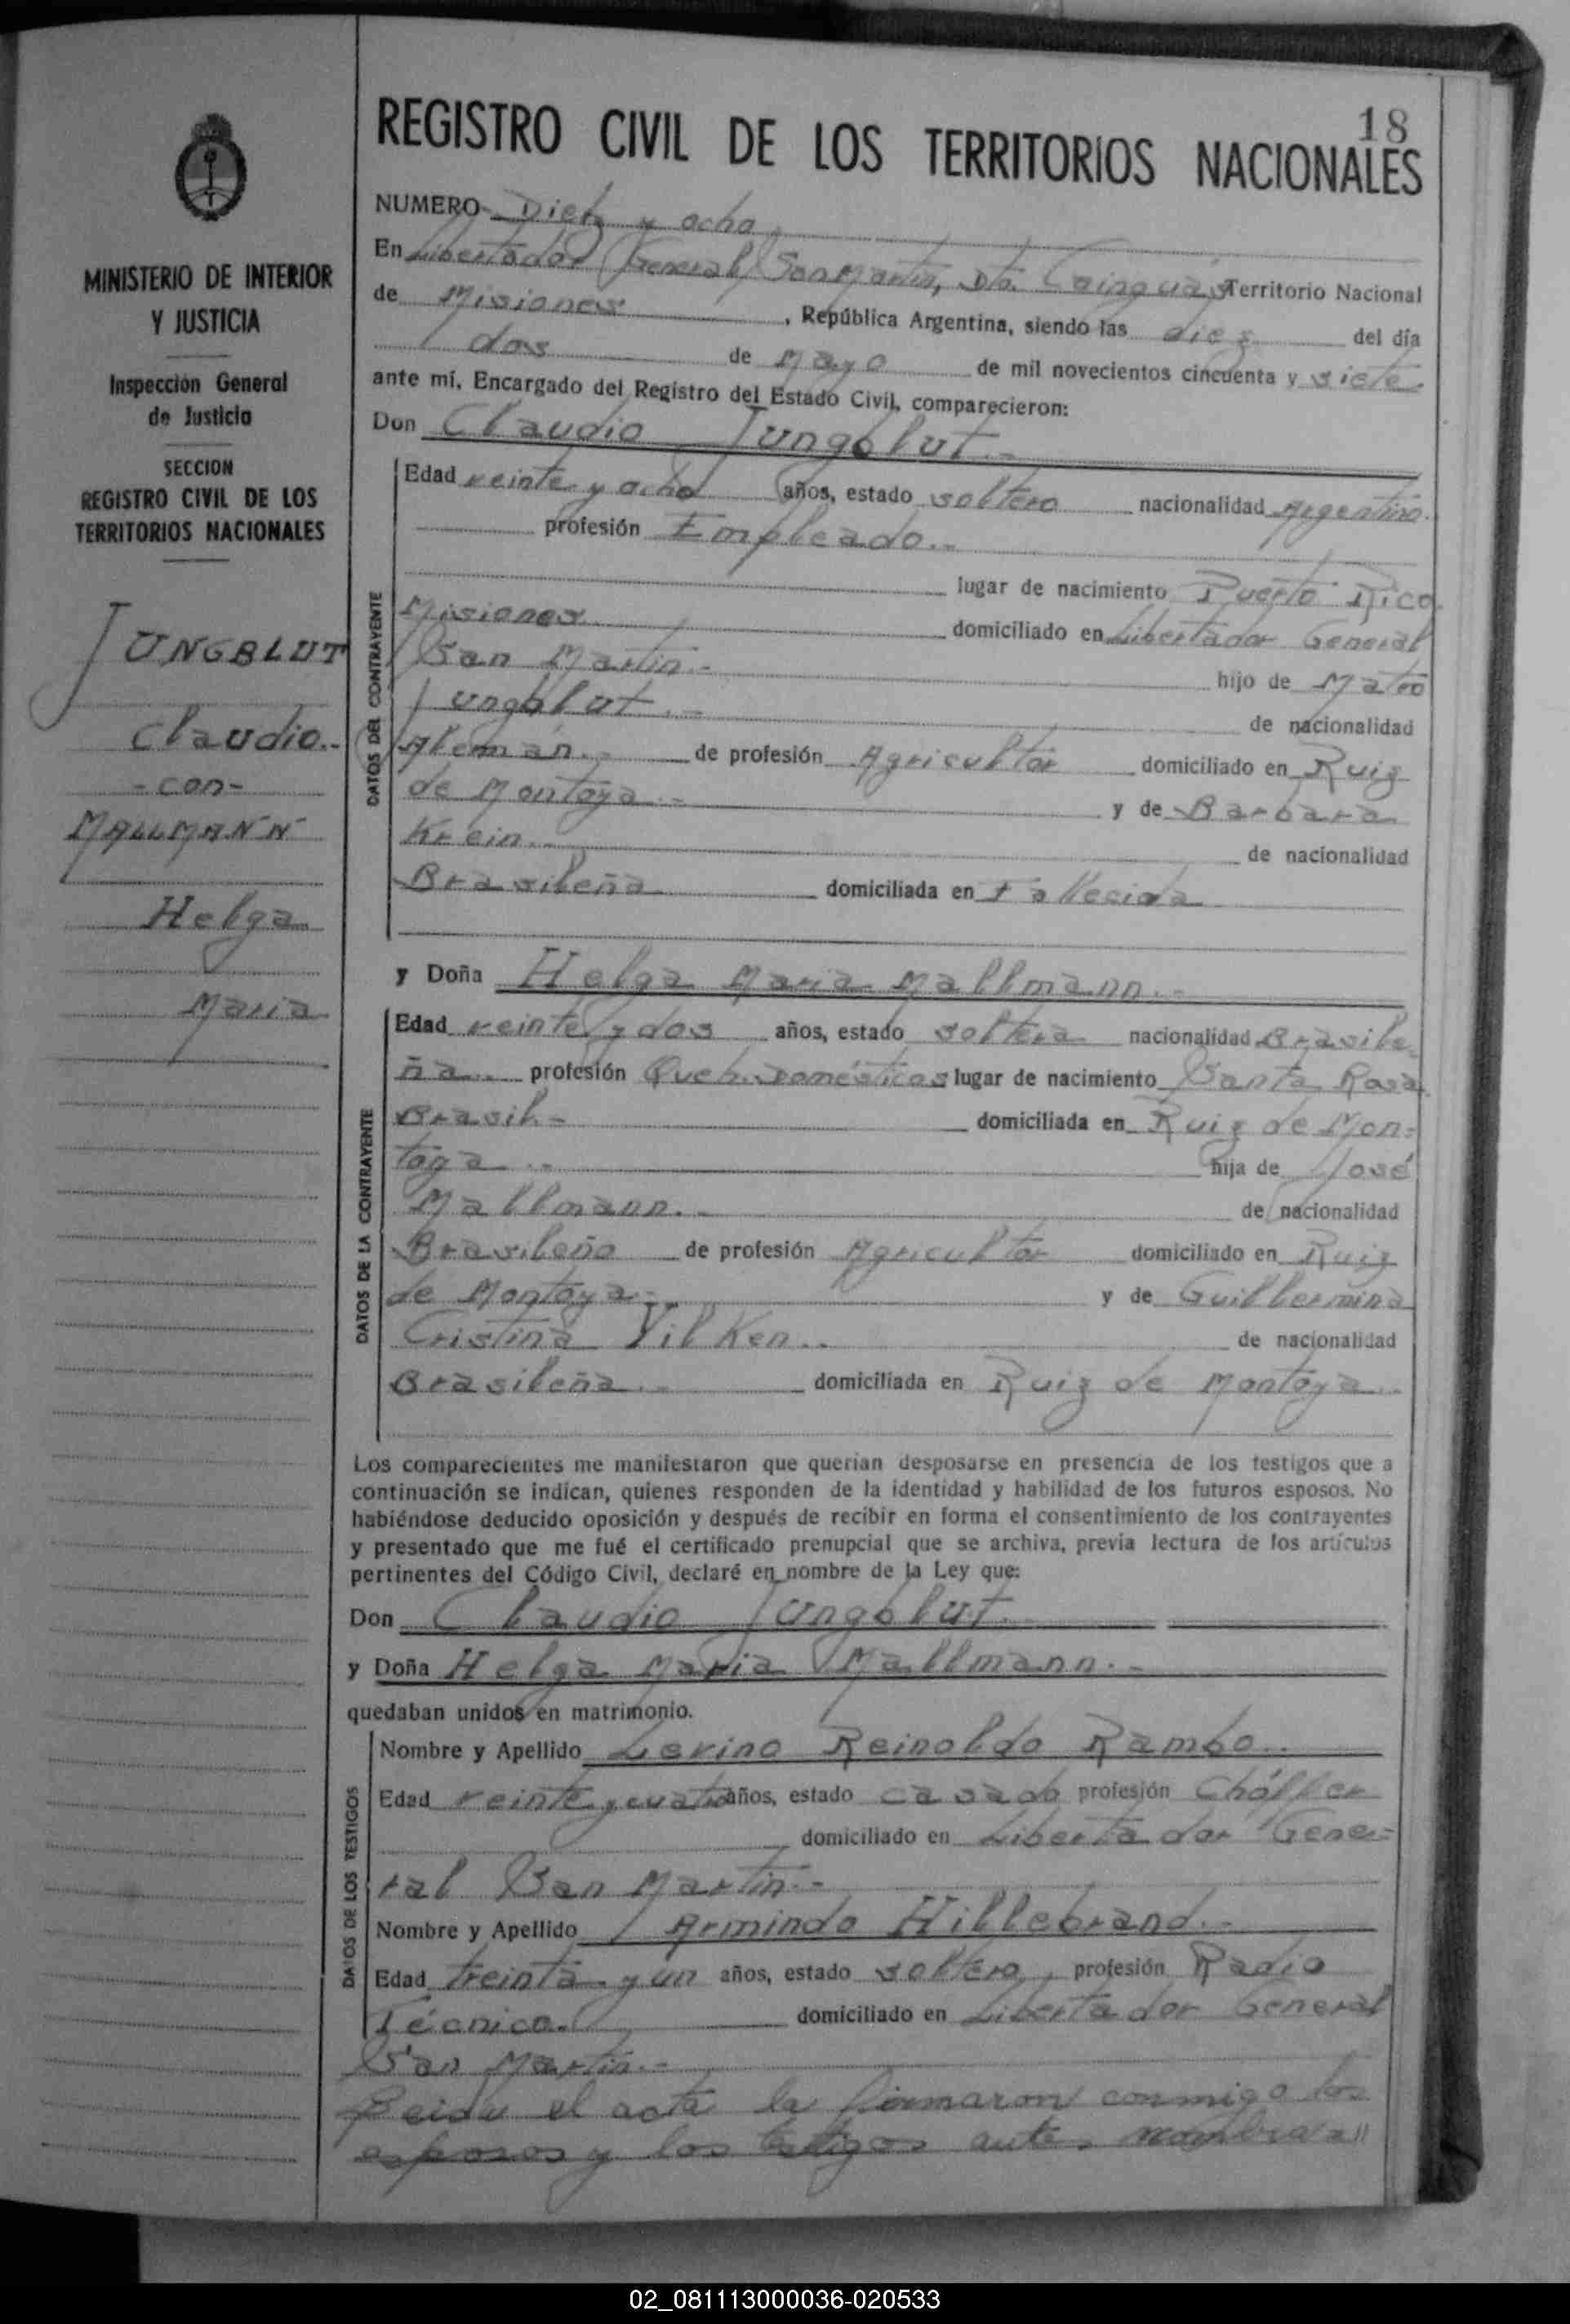 18
REGISTRO CIVIL DE LOS TERRITORIOS NACIONALES
MINISTERIO DE INTERIOR
Y JUSTICIA
Inspección General
de Justicia
SECCION
REGISTRO CIVIL DE LOS
TERRITORIOS NACIONALES
JUNGBLUT
Claudio.-
-con-
MALLMANN
Helga
Maria
NUMERO Diez y ocho
En Libertador General San Martín, Dto. Cainguás Territorio Nacional
de Misiones, República Argentina, siendo las diez del día
dos de Mayo de mil novecientos cincuenta y siete
ante mí, Encargado del Registro del Estado Civil, comparecieron:
Don Claudio Jungblut.-
DATOS DEL CONTRAYENTE
Edad veinte y ocho años, estado soltero nacionalidad Argentino.
profesión Empleado.-
lugar de nacimiento Puerto Rico
Misiones domiciliado en Libertador General
San Martín.- hijo de Mateo
Jungblut.- de nacionalidad
Alemán.- de profesión Agricultor domiciliado en Ruiz
de Montoya.- y de Barbara
Krein.- de nacionalidad
Brasileña domiciliada en Fallecida
y Doña Helga Maria Mallmann.-
DATOS DE LA CONTRAYENTE
Edad veinte y dos años, estado soltera nacionalidad Brasile=
ña.- profesión Queh. Domésticos lugar de nacimiento Santa Rosa
Brasil.- domiciliada en Ruiz de Mon=
toya.- hija de José
Mallmann.- de nacionalidad
Brasileño de profesión Agricultor domiciliado en Ruiz
de Montoya.- y de Guillermina
Cristina Vilken.- de nacionalidad
Brasileña.- domiciliada en Ruiz de Montoya.-
Los comparecientes me manifestaron que querían desposarse en presencia de los testigos que a
continuación se indican, quienes responden de la identidad y habilidad de los futuros esposos. No
habiéndose deducido oposición y después de recibir en forma el consentimiento de los contrayentes
y presentado que me fué el certificado prenupcial que se archiva, previa lectura de los artículos
pertinentes del Código Civil, declaré en nombre de la Ley que:
Don Claudio Jungblut.
y Doña Helga Maria Mallmann.-
quedaban unidos en matrimonio.
DATOS DE LOS TESTIGOS
Nombre y Apellido Levino Reinoldo Rambo.-
Edad veinte y cuatro años, estado casado profesión Chóffer
domiciliado en Libertador Gene=
ral San Martín.-
Nombre y Apellido Armindo Hillebrand.-
Edad treinta y un años, estado soltero, profesión Radio
Técnico. domiciliado en Libertador General
San Martín.-
Leida el acta la firmaron conmigo los
esposos y los testigos antes nombra=
02_081113000036-020533